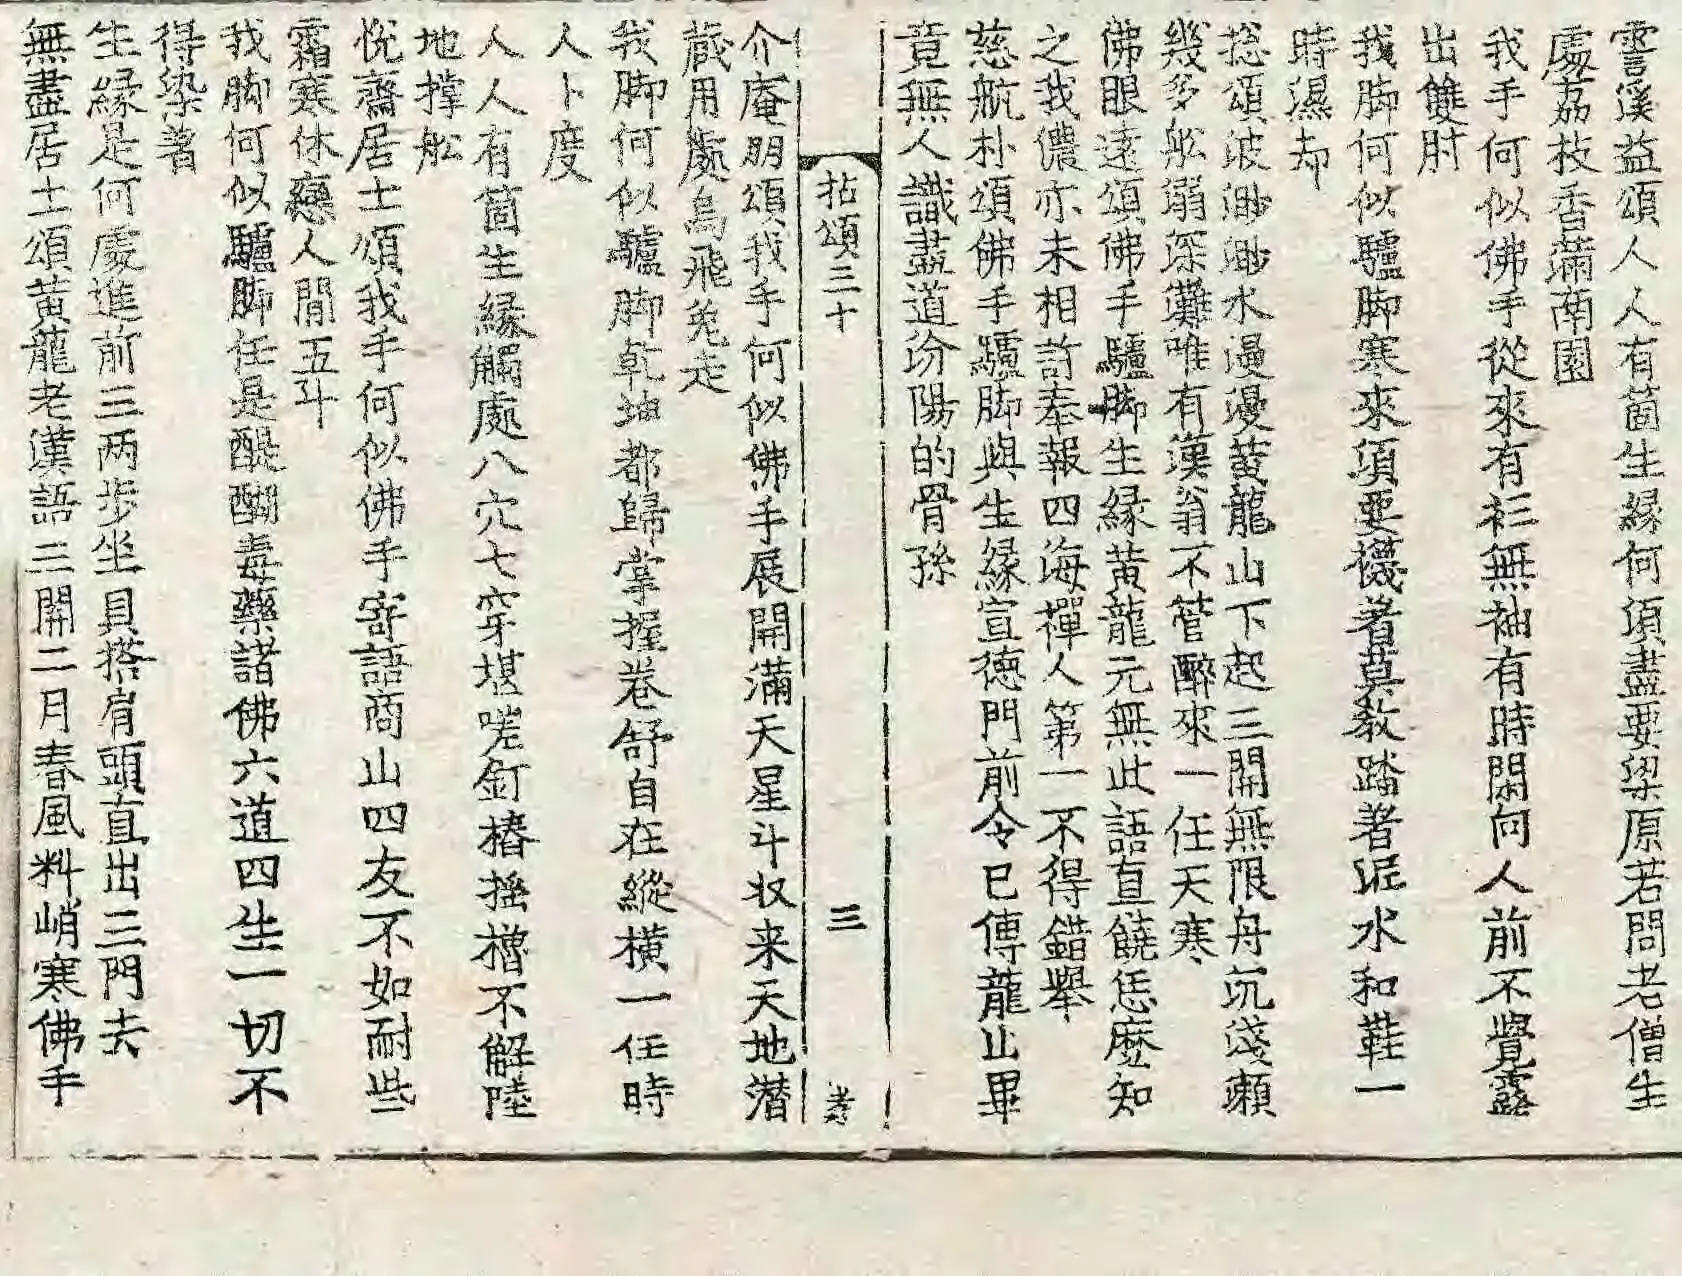 霅溪益頌人人有箇生緣何須盡要梁原若問老僧生
處荔枝香滿南園
我手何似佛手從來有衫無袖有時閑向人前不覺露
出雙肘
我脚何似驢脚寒來須要襪著莫敎踏著泥水和鞋一
時濕却
揔頌波渺渺水漫漫黃龍山下起三關無限舟沉淺瀨
幾多舩溺深灘唯有漢翁不管醉來一任天寒
佛眼遠頌佛手驢脚生緣黃龍元無此語直饒恁麽知
之我儂亦未相許奉報四海禪人第一不得錯舉
慈航朴頌佛手驢脚與生緣宣德門前令已傳龍止畢
竟無人識盡道汾陽的骨孫
拈頌三十
三
介庵朋頌我手何似佛手展開滿天星斗收来天地潛
藏用處烏飛兔走
我脚何似驢脚乾坤都歸掌握卷舒自在縱橫一任時
人卜度
人人有箇生緣觸處八穴七穿堪嗟釘樁搖櫓不解陸
地撑舩
悅齋居士頌我手何似佛手寄語商山四友不如耐些
霜寒休戀人間五斗
我脚何似驢脚任是醍醐毒藥諸佛六道四生一切不
得染著
生緣是何處進前三两步坐具搭肩頭直出三門去
無盡居士頌黃龍老漢語三關二月春風料峭寒佛手